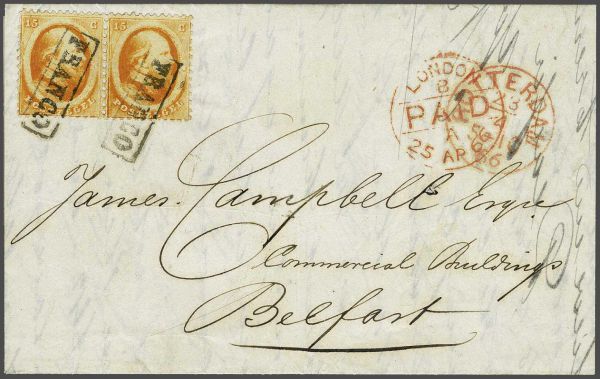 15 C 15 C
POSTZEGEL POSTZEGEL
FRANCO FRANCO
LONDON
PAID
25 AP 66
ROTTERDAM
James Campbell Esqre
Commercial Buildings
Belfast